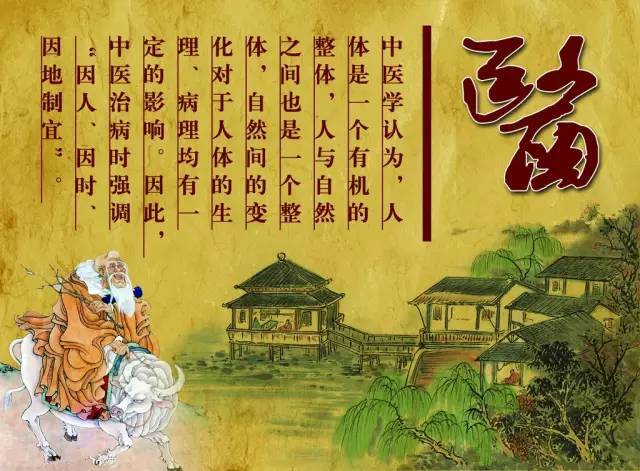 醫
中医学认为，人
体是一个有机的
整体，人与自然
之间也是一个整
体，自然间的变
化对于人体的生
理、病理均有一
定的影响。因此，
中医治病时强调
“因人、因时、
因地制宜”。